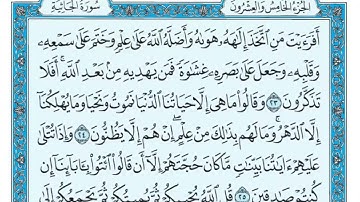 الجُزْءُ الخَامِسُ وَالعِشْرُونَ سُورَةُ الجَاثِيَةِ
أَفَرَءَيْتَ مَنِ ٱتَّخَذَ إِلَٰهَهُۥ هَوَىٰهُ وَأَضَلَّهُ ٱللَّهُ عَلَىٰ عِلْمٍ وَخَتَمَ عَلَىٰ سَمْعِهِۦ
وَقَلْبِهِۦ وَجَعَلَ عَلَىٰ بَصَرِهِۦ غِشَٰوَةً فَمَن يَهْدِيهِ مِنۢ بَعْدِ ٱللَّهِ ۚ أَفَلَا
تَذَكَّرُونَ ٢٣ وَقَالُوا۟ مَا هِىَ إِلَّا حَيَاتُنَا ٱلدُّنْيَا نَمُوتُ وَنَحْيَا وَمَا يُهْلِكُنَآ
إِلَّا ٱلدَّهْرُ ۚ وَمَا لَهُم بِذَٰلِكَ مِنْ عِلْمٍ ۖ إِنْ هُمْ إِلَّا يَظُنُّونَ ٢٤ وَإِذَا تُتْلَىٰ
عَلَيْهِمْ ءَايَٰتُنَا بَيِّنَٰتٍ مَّا كَانَ حُجَّتَهُمْ إِلَّآ أَن قَالُوا۟ ٱئْتُوا۟ بِـَٔابَآئِنَآ إِن
كُنتُمْ صَٰدِقِينَ ٢٥ قُلِ ٱللَّهُ يُحْيِيكُمْ ثُمَّ يُمِيتُكُمْ ثُمَّ يَجْمَعُكُمْ إِلَىٰ